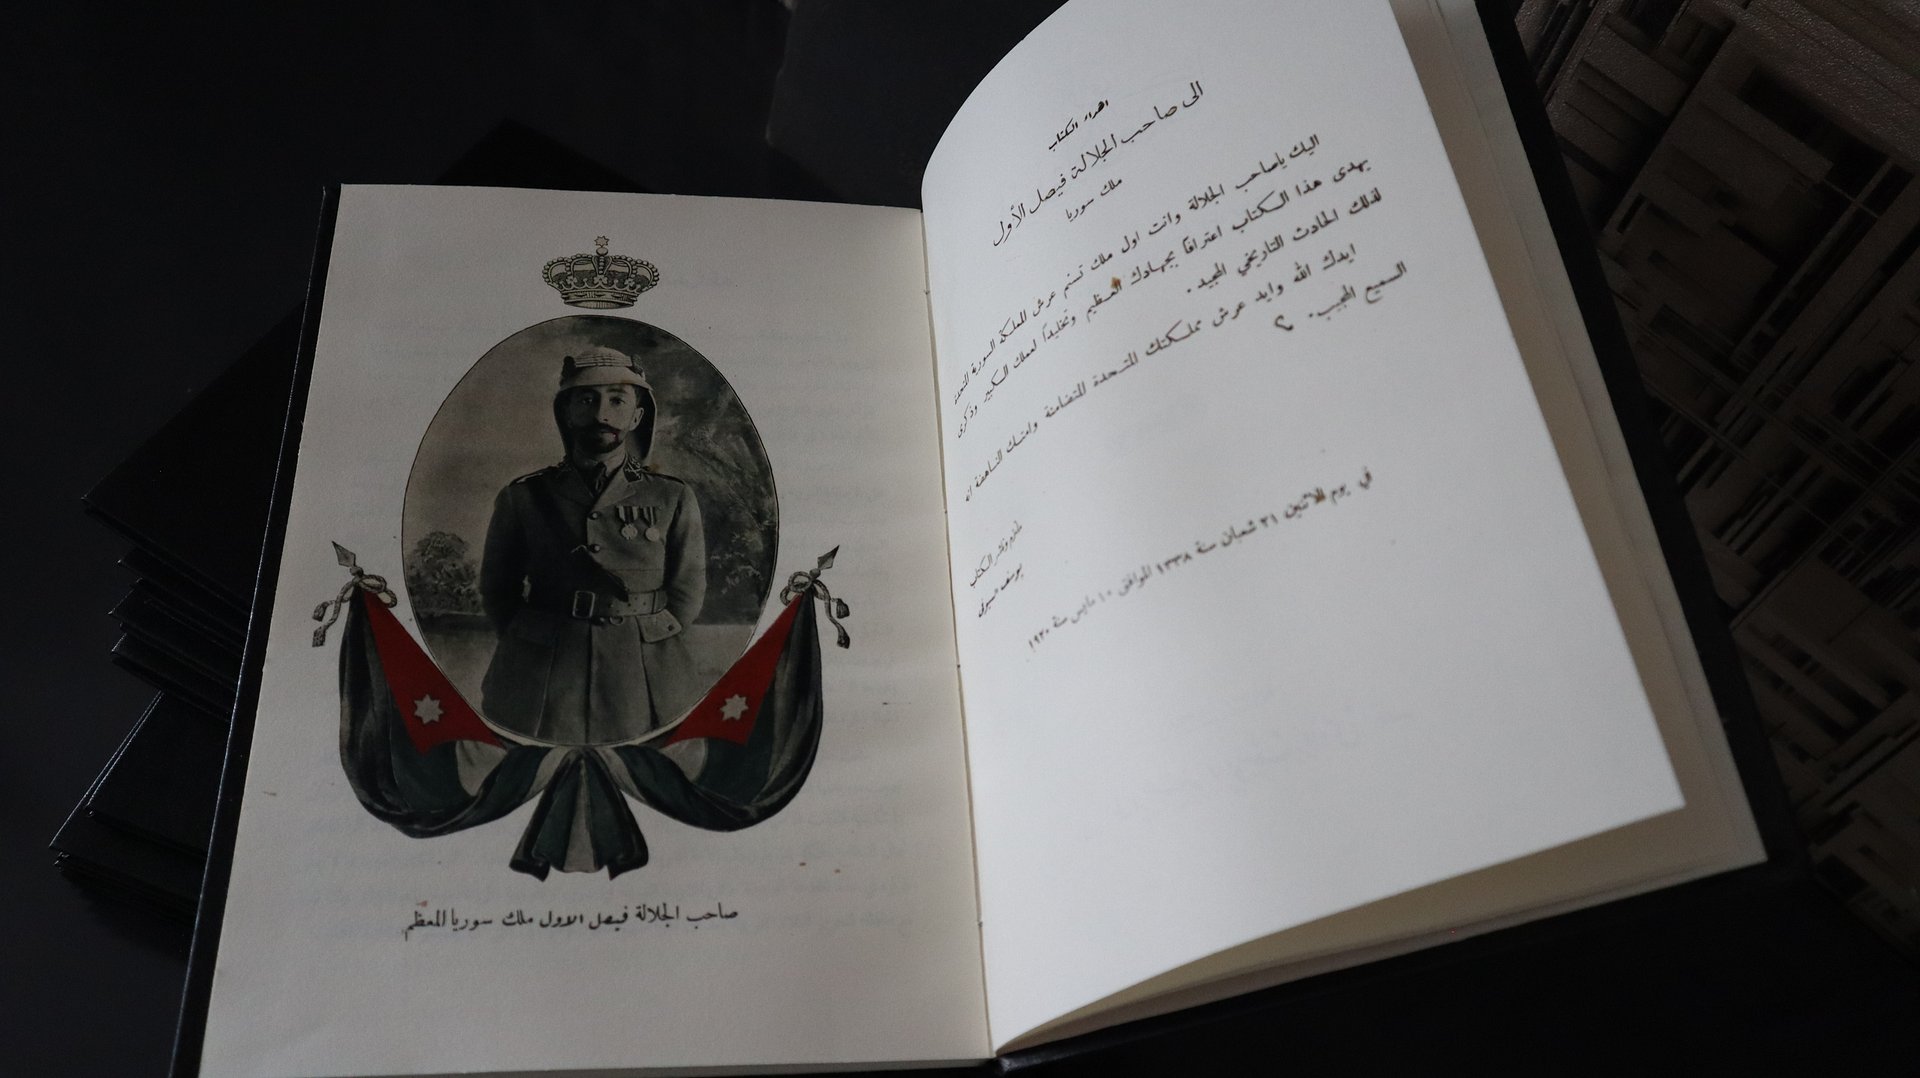 صاحب الجلالة فيصل الاول ملك سوريا المعظم
اهداء الكتاب
الى صاحب الجلالة فيصل الأول
ملك سوريا
اليك ياصاحب الجلالة وانت اول ملك تسنم عرش المملكة السورية المتحدة
يهدى هذا الكتاب اعترافا بجهادك العظيم وتخليدا لعملك الكبير وذكرى
لذلك الحادث التاريخي المجيد.
ايدك الله وايد عرش مملكتك المتحدة المتضامنة وامتك الناهضة انه
السميع المجيب.
في يوم الاثنين ٢١ شعبان سنة ١٣٣٨ الموافق ١٠ مايس سنة ١٩٢٠
ونشر الكتاب
يوسف